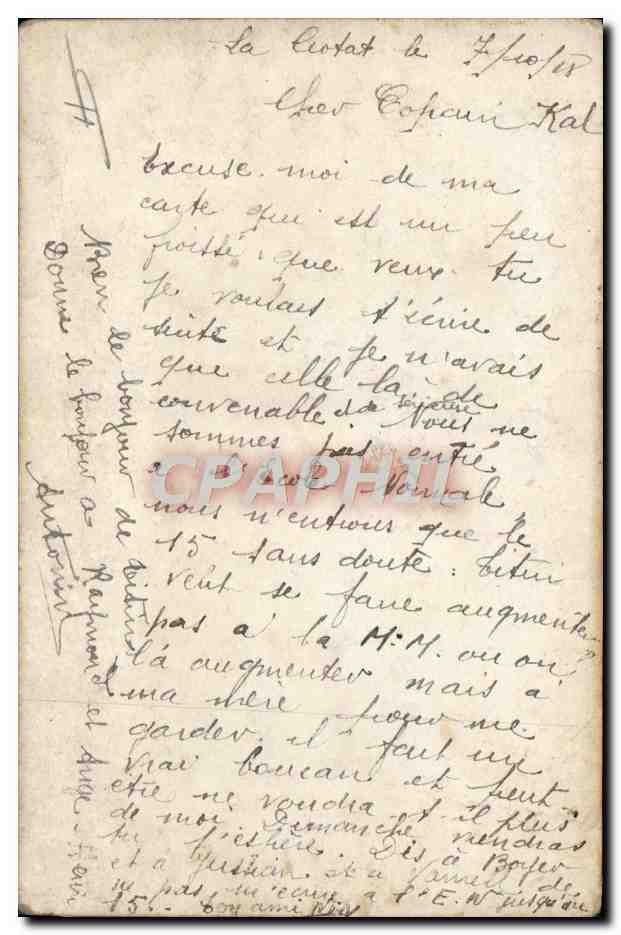 La Ciotat le 7/10/18
Cher Copain Kal
Excuse moi de ma
carte qui est un peu
froissé, que veux tu
je voulais t'écrire de
suite et je n'avais
que celle là de
convenable Nous ne
sommes pas entré
à l'Ecole Normale,
nous n'entrons que le
15 sans doute. Titin
veut se faire augmenter
pas à la M. M. ou on
l'a augmenter mais à
ma mère pour me
garder. il fait un
vrai boucan et peut
etre ne voudra t-il plus
de moi. Dimanche viendras
tu j'espère. Dis à Boyer
et à et à de
ne pas m'ecrire a l'E. N jusqu'au
15. Ton ami
Bien le bonjour de Titin
Donne le bonjour a Raymond et Ange
Antonin
CPAPHIL